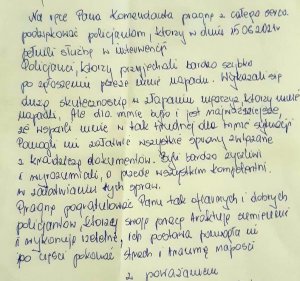 Na ręce Pana Komendanta pragnę z całego serca
podziękować policjantom, którzy w dniu 15.06.2021r
pełnili służbę w interwencji
Policjanci, którzy przyjechali bardzo szybko
po zgłoszeniu przeze mnie napadu. Wykazali się
dużą skutecznością w złapaniu mężczyzn którzy mnie
napadli. Ale dla mnie było i jest najważniejsze
że wsparli mnie w tak trudnej dla mnie sytuacji
Pomogli mi załatwić wszystkie sprawy związane
z kradzieżą dokumentów. Byli bardzo życzliwi
i wyrozumiali, a przede wszystkim kompetentni
w załatwianiu tych spraw.
Pragnę pogratulować Panu tak ofiarnych i dobrych
policjantów, którzy swoją pracę traktują sumiennie
i wykonują rzetelnie, ich postawa pomogła mi
po części pokonać strach i traumę napaści
z poważaniem